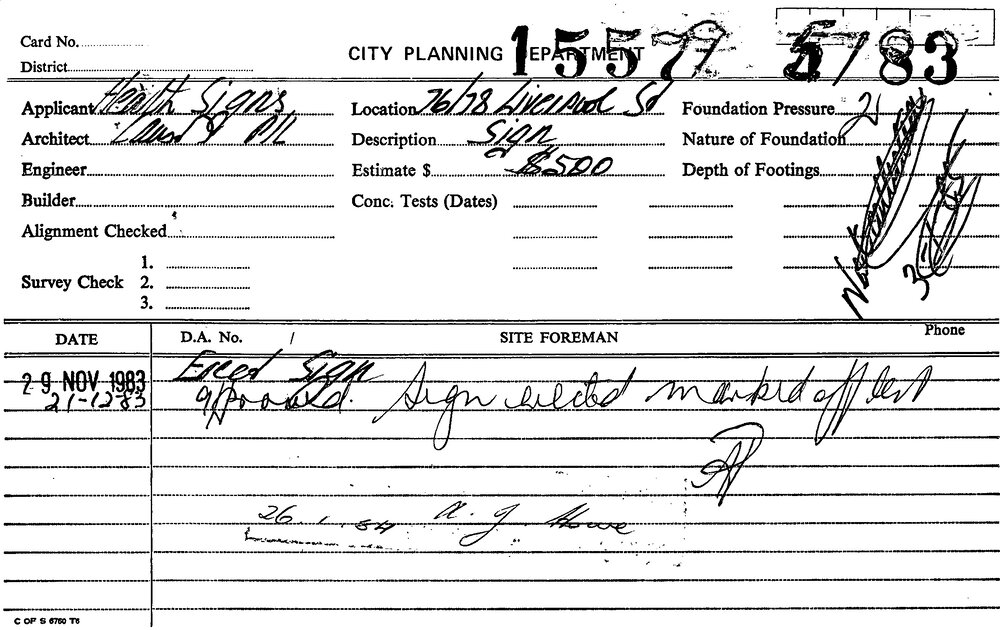 Card No.
CITY PLANNING DEPARTMENT 15577 5/83
District
Applicant Health Signs Location 76/78 Liverpool St Foundation Pressure
Architect P/L Description Sign Nature of Foundation
Engineer Estimate $ $500 Depth of Footings
Builder Conc. Tests (Dates)
Alignment Checked
1.
Survey Check 2.
3.
DATE D.A. No. / SITE FOREMAN Phone
29 NOV 1983 Erect Sign
21-12-83 approved. Sign erected marked off list
26.1.84 A. J. Howe
C OF S 6760 T6